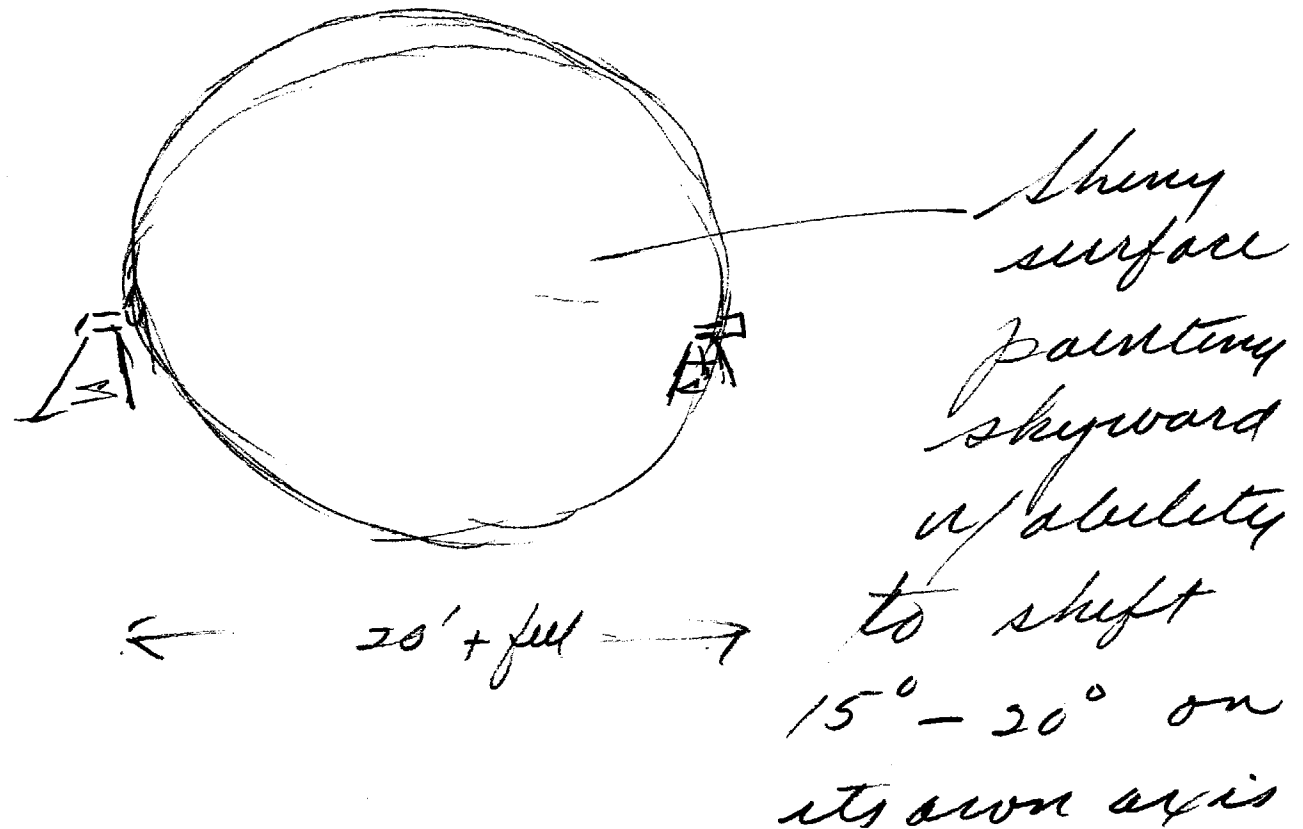 shiny
surface
pointing
skyward
w/ ability
to shift
15° - 20° on
its own axis
20' + feet